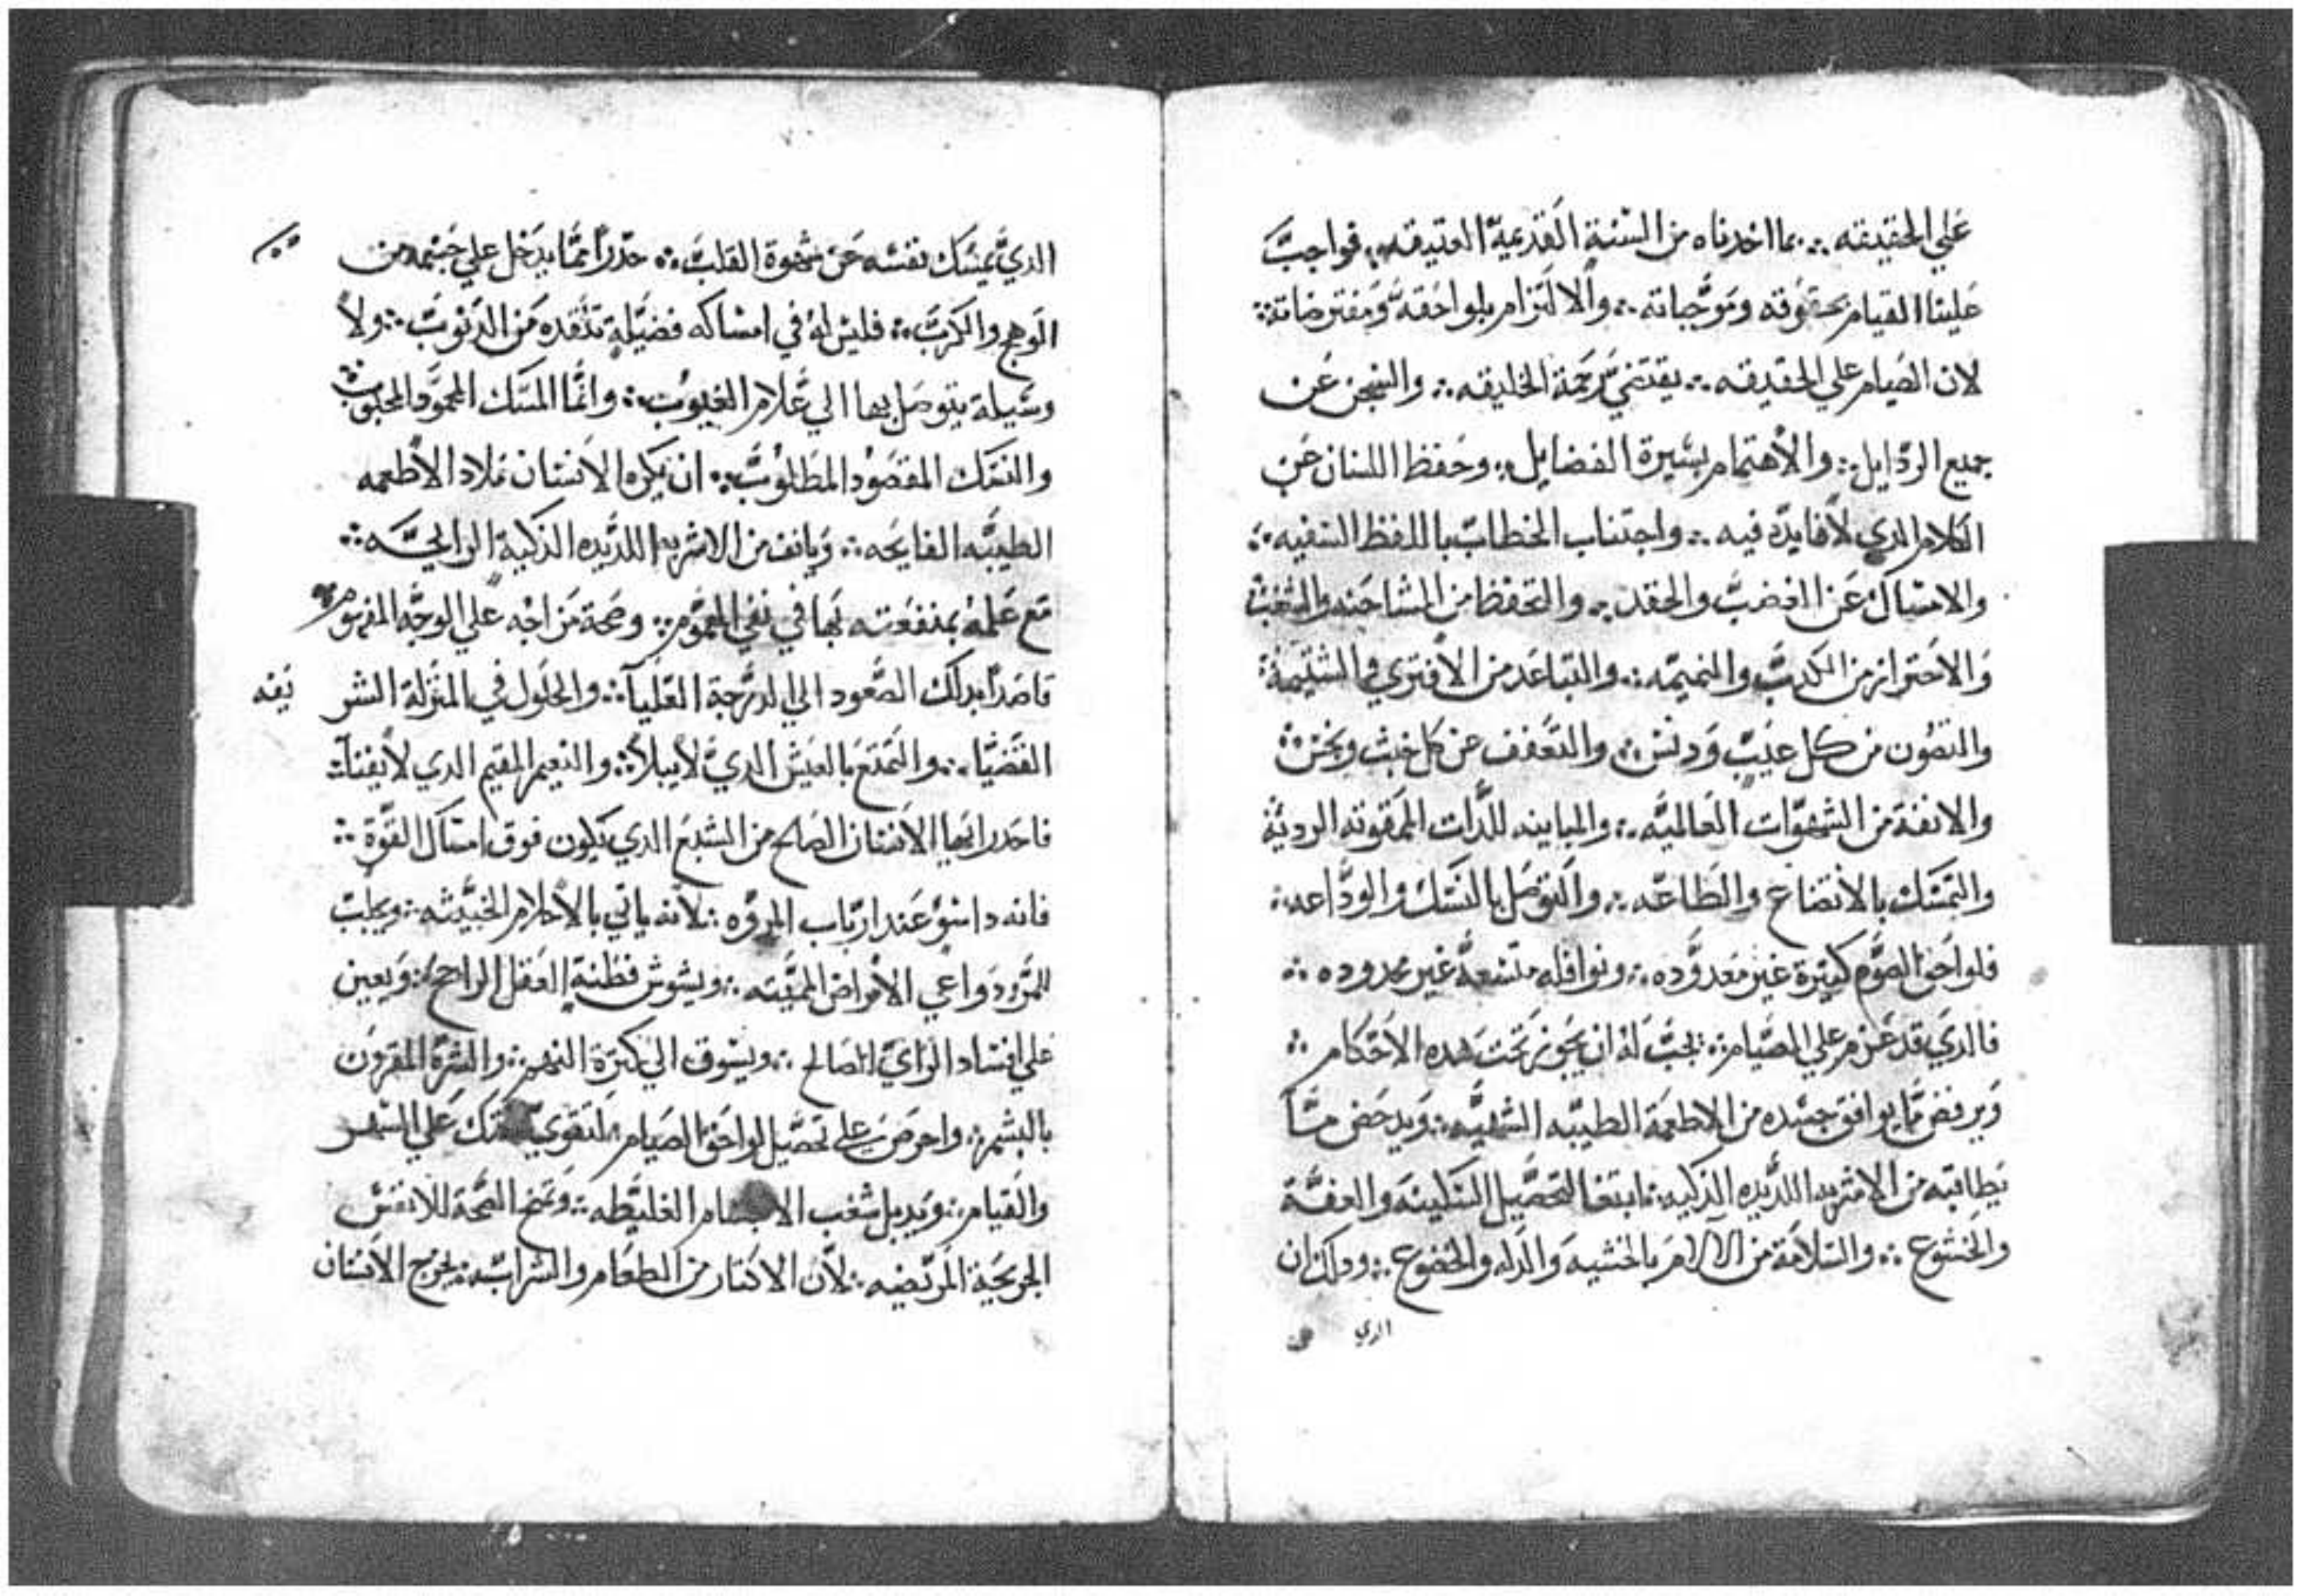 علي الحقيقه ؞ بما اخدناه من السنة القديمة العتيقه ؞ فواجب
علينا القيام بحقوقه وموجباته ؞ والالتزام بلواحقه ومفترضاته ؞
لان الصيام علي الحقيقه ؞ يقتضي رحمة الخليقه ؞ والسجن عن
جميع الردايل ؞ والاهتمام بسيرة الفضايل ؞ وحفظ اللسان عن
الكلام الدي لا فايده فيه ؞ واجتناب الخطاب باللفظ السفيه ؞
والامساك عن الغضب والحقد ؞ والتحفظ من المشاحنه والشغب
والاحتراز من الكدب والنميمه ؞ والتباعد من الافتري والشتيمة ؞
والتصون من كل عيب ودنس ؞ والتعفف عن كل خبث ونجس ؞
والانفة من الشهوات العالميه ؞ والمباينه للدات الممقوته الرديه
والتمسك بالاتضاع والطاعه ؞ والتوصل بالنسك والوداعه ؞
فلواحق الصوم كتيرة غير معدوده ؞ ونوافله متسعة غير محدوده ؞
فالدي قد عزم علي الصيام ؞ يجب له ان يجوز تحت هده الاحكام ؞
ويرفض ما يوافق جسده من الاطعمة الطيبه الشهيه ؞ ويدحض ما
يطابته من الاشربه اللديده الدكيه ؞ ابتغا لتحصيل السكينه والعفة
والخشوع ؞ والسلامة من الالام بالخشيه والدله والخضوع ؞ ودلك ان
الدي
الدي يمسك نفسه عن شهوة القلب ؞ حدرا مما يدخل علي جسمه من
الوهج والكرب ؞ فليس له في امساكه فضيلة تنقده من الدنوب ؞ ولا
وسيلة يتوصل بها الي علام الغيوب ؞ وانما المسك المحمود المحبوب
والنسك المقصود المطلوب ؞ ان يكره الانسان ملاد الاطعمه
الطيبه الفايحه ؞ ويانف من الاشربه اللديده الدكية الرايحه ؞
مع علمه بمنفعته بها في نفي الهموم ؞ وصحة مزاجه علي الوجه المرسوم
قاصدا بدلك الصعود الي الدرجة العليا ؞ والحلول في المنزلة الشر يفه
القضيا ؞ والتمتع بالعيش الدي لا يبلا ؞ والنعيم المقيم الدي لا يفنا ؞
فاحدر ايها الانسان الصالح من الشبع الدي يكون فوق امساك القوة ؞
فانه داسؤ عند ارباب المروه ؞ لانه ياتي بالاحلام الخبيثه ؞ ويجلب
للمرؤ دواعي الامراض المميته ؞ ويشوش فطنة العقل الراجح ؞ ويعين
علي افساد الراي الصالح ؞ ويسوق الي كثرة النهم ؞ والشره المقرون
بالبشم ؞ واحرص علي تحصيل لواحق الصيام ؞ لتقوي علي السهر
والقيام ؞ ويدبل شغب الاجسام الغليظه ؞ وتمنح الصحة للانفس
الجريحية المريضه ؞ لان الاكتار من الطعام والشراب ؞ يخرج الانسان